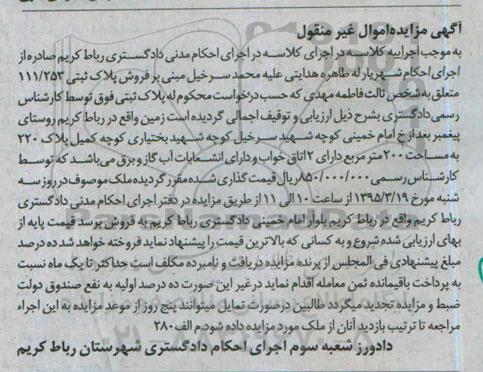 آگهی مزایده اموال غیر منقول
به موجب اجراییه کلاسه در اجرای کلاسه در اجرای احکام مدنی دادگستری رباط کریم صادره از
اجرای احکام شهریار له طاهره هدایتی علیه محمد سرخیل مبنی بر فروش پلاک ثبتی ۱۱۱/۲۵۳
متعلق به شخص ثالث فاطمه مهدی که حسب درخواست محکوم له پلاک ثبتی فوق توسط کارشناس
رسمی دادگستری بشرح ذیل ارزیابی و توقیف اجمالی گردیده است زمین واقع در رباط کریم روستای
پیغمبر بعد از خ امام خمینی کوچه شهید سرخیل کوچه شهید بختیاری کوچه کمیل پلاک ۲۲۰
به مساحت ۲۰۰ متر مربع دارای ۲ اتاق خواب و دارای انشعابات آب گاز و برق می باشد که توسط
کارشناس رسمی ۸۵۰/۰۰۰/۰۰۰ ریال قیمت گذاری شده مقرر گردیده ملک موصوف در روز سه
شنبه مورخ ۱۳۹۵/۳/۱۹ از ساعت ۱۰ الی ۱۱ از طریق مزایده در دفتر اجرای احکام مدنی دادگستری
رباط کریم واقع در رباط کریم بلوار امام خمینی دادگستری رباط کریم به فروش برسد قیمت پایه از
بهای ارزیابی شده شروع و به کسانی که بالاترین قیمت را پیشنهاد نماید فروخته خواهد شد ده درصد
مبلغ پیشنهادی فی المجلس از برنده مزایده دریافت و نامبرده مکلف است حداکثر تا یک ماه نسبت
به پرداخت باقیمانده ثمن معامله اقدام نماید در غیر این صورت ده درصد اولیه به نفع صندوق دولت
ضبط و مزایده تجدید میگردد طالبین در صورت تمایل میتوانند پنج روز از موعد مزایده به این اجراء
مراجعه تا ترتیب بازدید آنان از ملک مورد مزایده داده شود. م الف ۲۸۰
دادورز شعبه سوم اجرای احکام دادگستری شهرستان رباط کریم